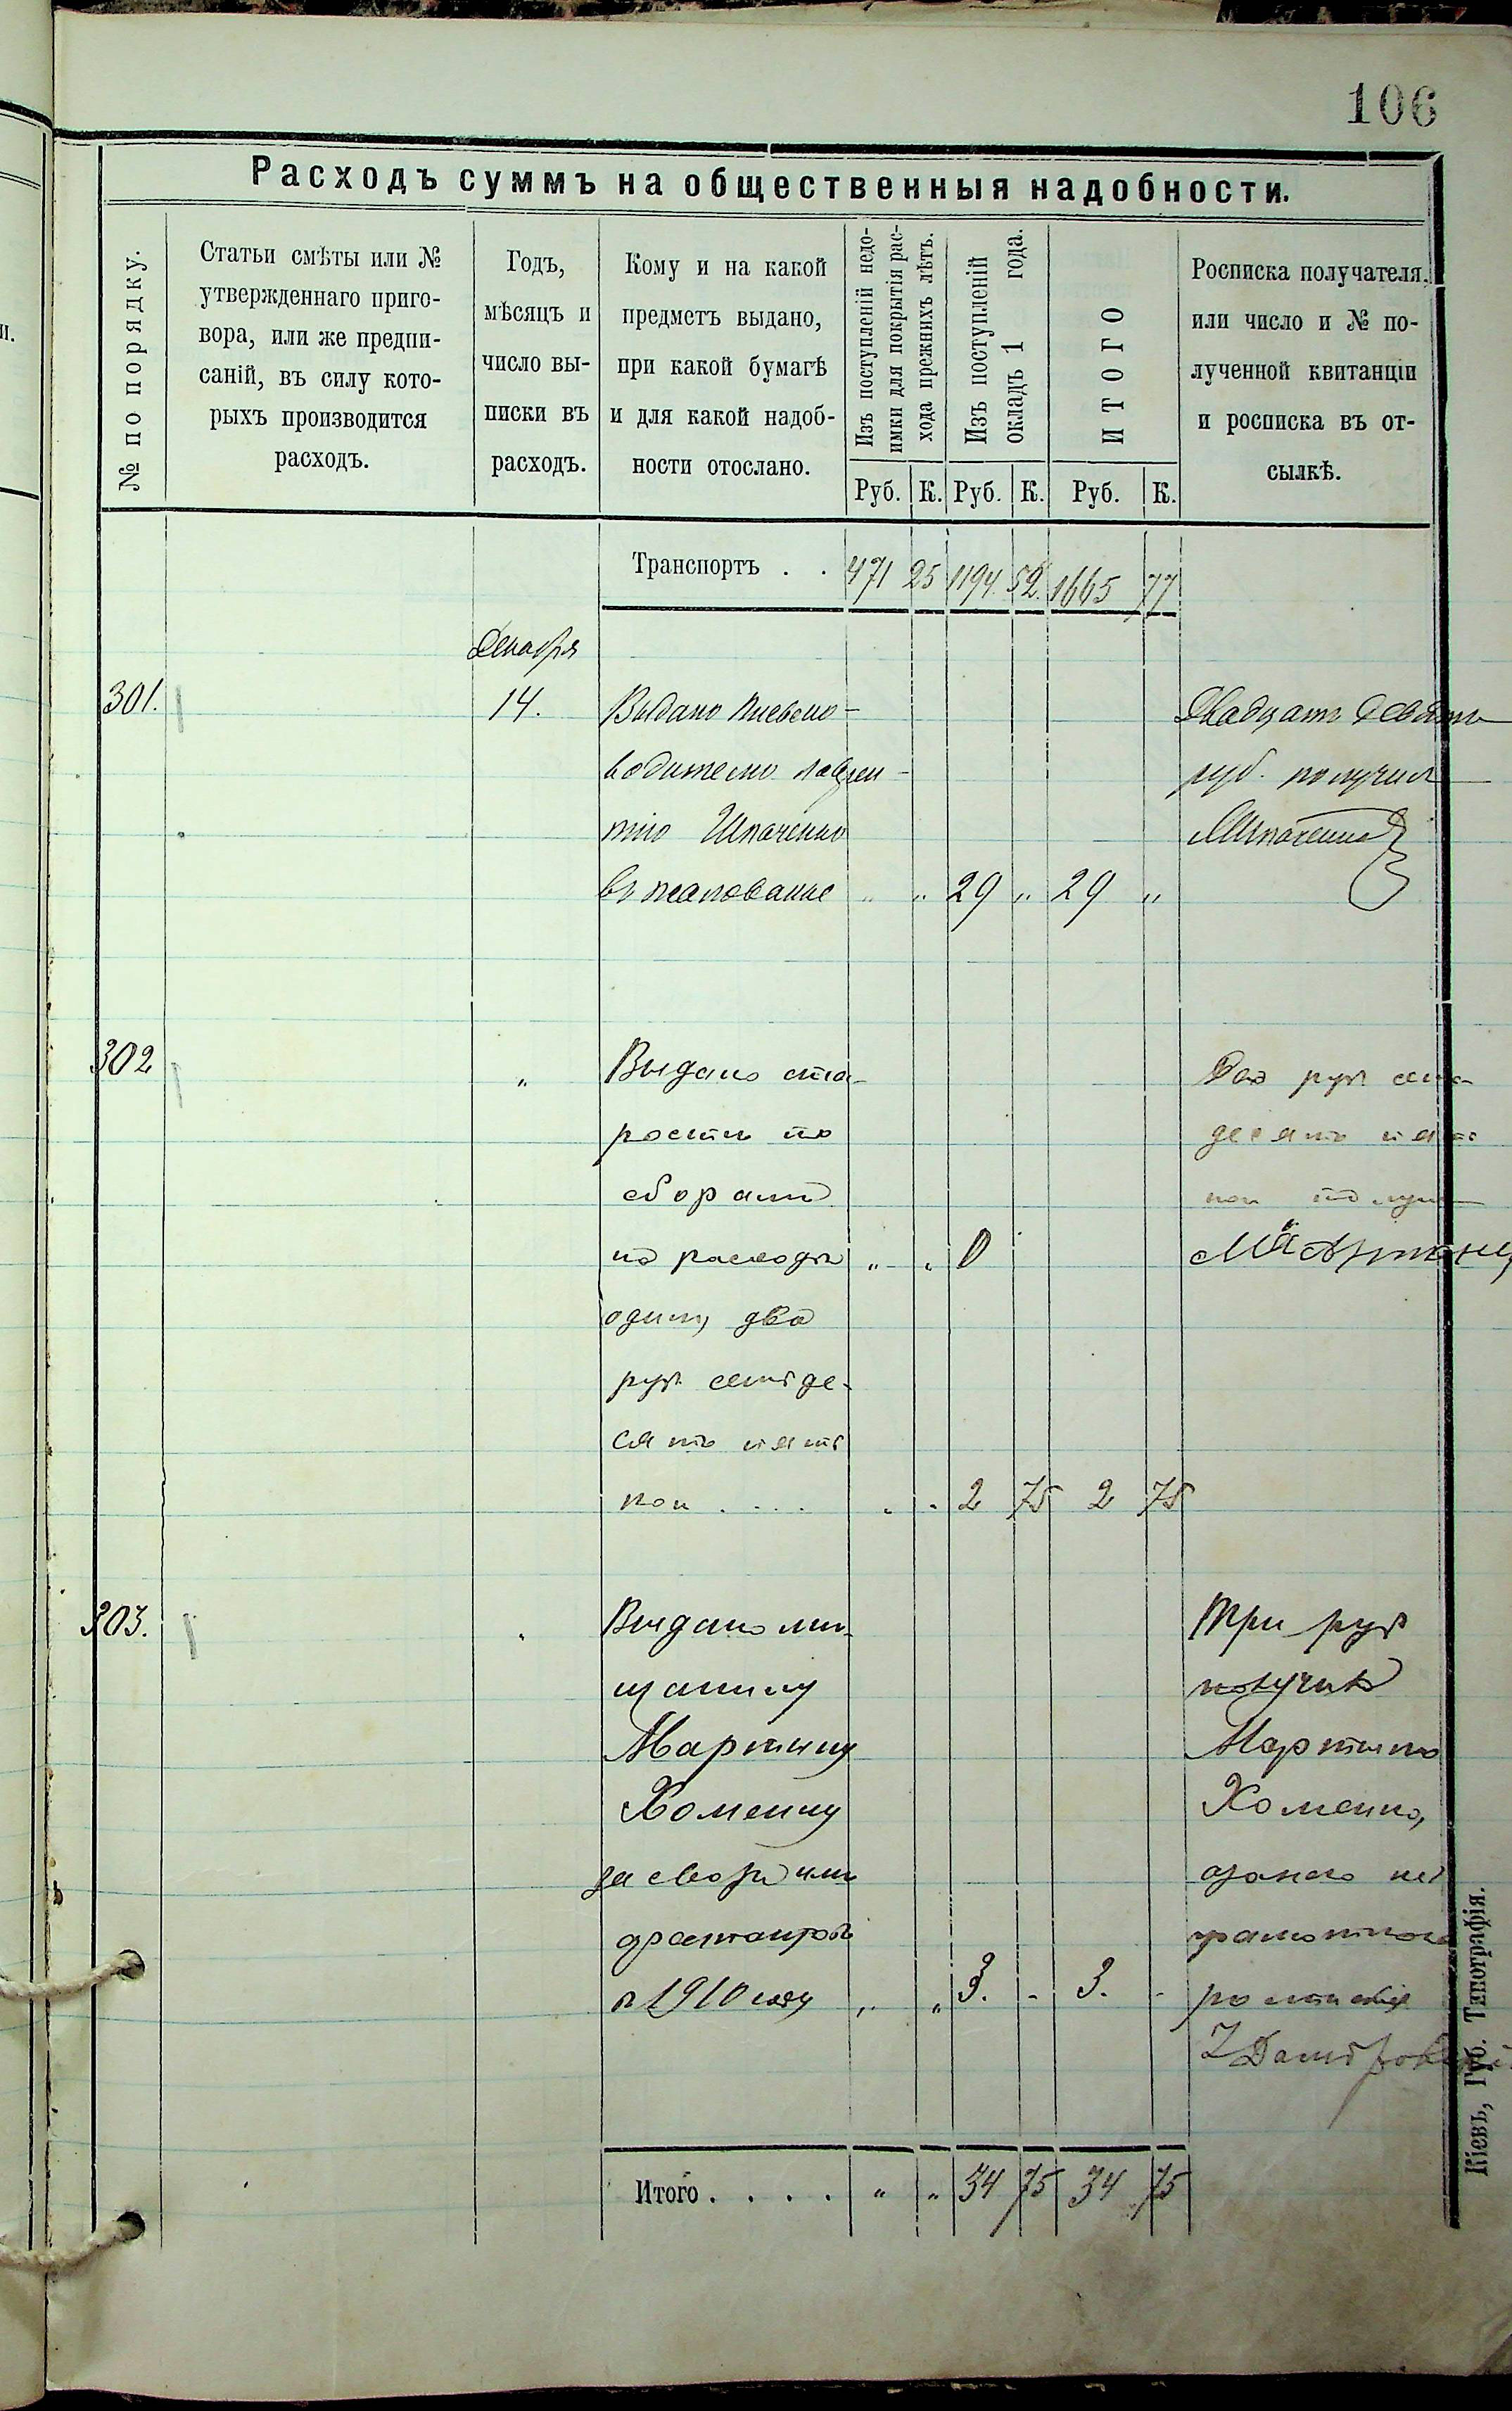 106
Расходъ суммъ на общественныя надобности.
№ по порядку.
Статьи смѣты или №
утвержденнаго приго-
вора, или же предпи-
саній, въ силу кото-
рыхъ производится
расходъ.
Годъ,
мѣсяцъ и
число вы-
писки въ
расходъ.
Кому и на какой
предметъ выдано,
при какой бумагѣ
и для какой надоб-
ности отослано.
Изъ поступленій недо-
имки для покрытія рас-
хода прежнихъ лѣтъ.
Изъ поступленій
окладъ 1 года.
ИТОГО
Росписка получателя.
или число и № по-
лученной квитанціи
и росписка въ от-
сылкѣ.
Руб. К. Руб. К. Руб. К.
Транспортъ . . 471 25 1194 52. 1665 77
Декабря
301. 14. Выдано письмо-
водителю Лаврен-
тію Шпаченко
въ жалование „ „ 29 „ 29 „
Двадцать девять
руб. получилъ
Шпаченко
302 „ Выдано ста-
ростѣ по
сборамъ
на расходы „ „
одинъ, два
руб. семьде-
сятъ пять
коп . . . . „ „ 2 75 2 75
Два руб семь
десятъ пять
коп получ
303. „ Выдано мѣ-
щанину
Мартину
Хоменку
арестантовъ
в 1910 году „ „ 3. - 3. -
Три руб
получилъ
Мартинъ
Хоменко,
а за него не
грамотнаго
Итого . . . . „ „ 34 75 34 75
Кіевъ, Губ. Типографія.